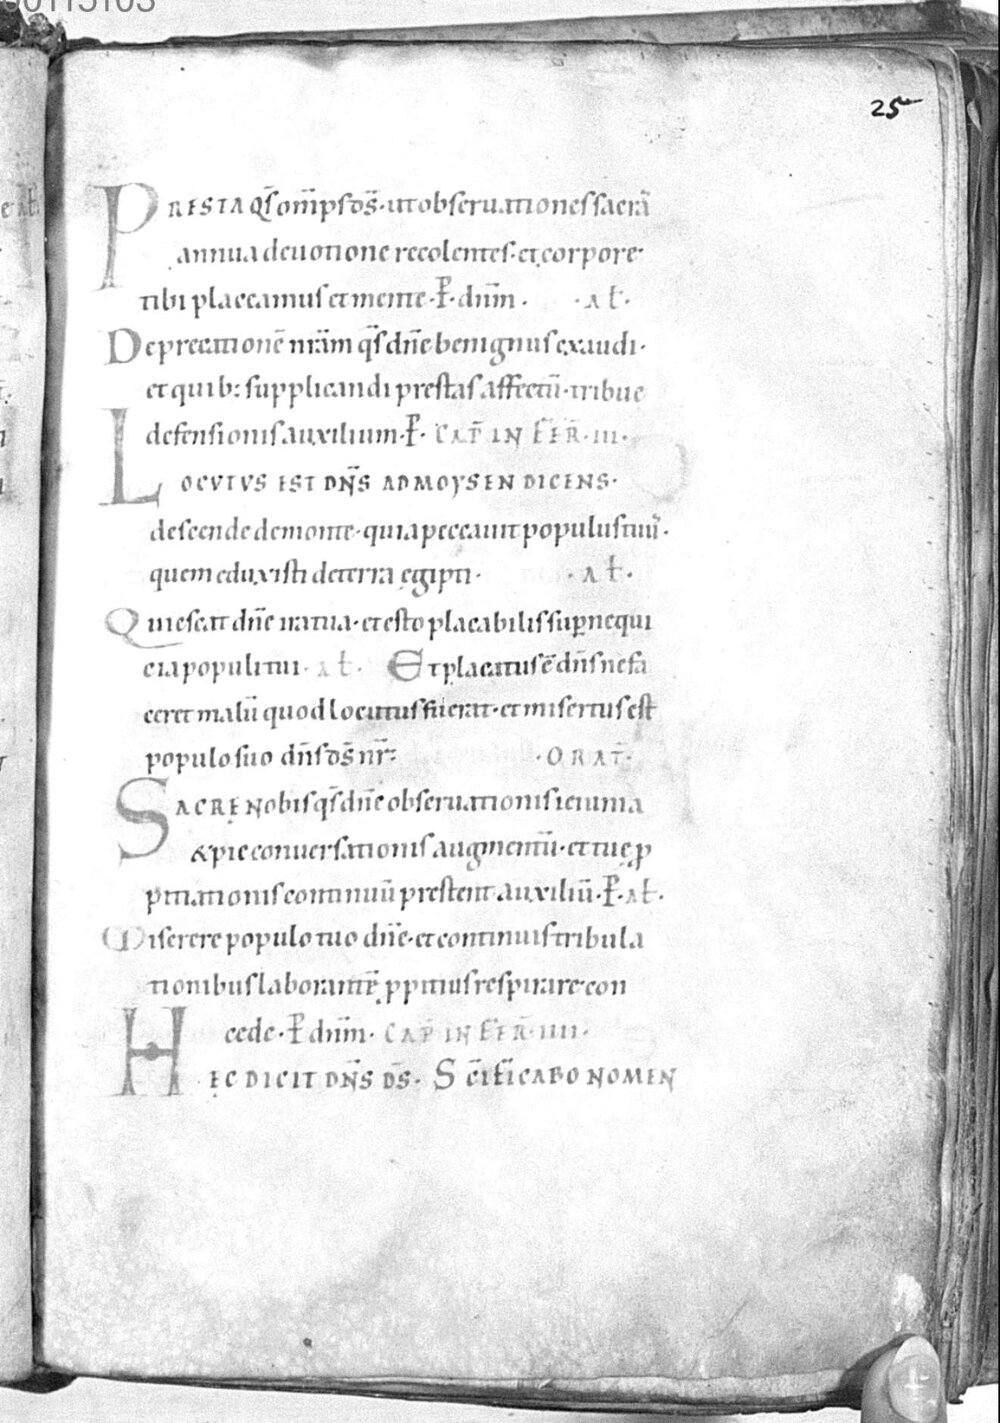 00115103
25
PRESTA QS̄ om̄ps d̄s̄· ut observationes sacrā
annua devotione recolentes· et corpore·
tibi placeamus et mente· P̄· dn̄m̄· · AL̄·
Deprecationē nr̄am qs̄ dn̄e benignus exaudi·
et quib: supplicandi prestas affectū· tribue
defensionis auxilium· P̄· CAP̄ IN FER̄· III·
LOCUTUS EST DN̄S AD MOYSEN DICENS·
descende de monte· quia peccavit populus tuū·
quem eduxisti de terra ęgipti· · AL̄·
Quiescat dn̄e ira tua· et esto placabilis sup̄ nequi
cia populi tui· AL̄· Et placatus ē dn̄s ne fa
ceret malū quod locutus fuerat· et misertus est
populo suo dn̄s d̄s̄ nr̄· · ORAT̄·
SACRĘ Nobis qs̄ dn̄e observationis ieiunia
& pie conversationis augmentū· et tuę p̱ro
pitiationis continuū prestent auxiliū· P̄· AL̄·
Miserere populo tuo dn̄e· et continuis tribula
tionibus laborantē ppitius respirare con
cede· P̄ dn̄m̄· CAP̄ IN FER̄· IIII·
HĘC DICIT DN̄S D̄S̄· SC̄IFICABO NOMEN